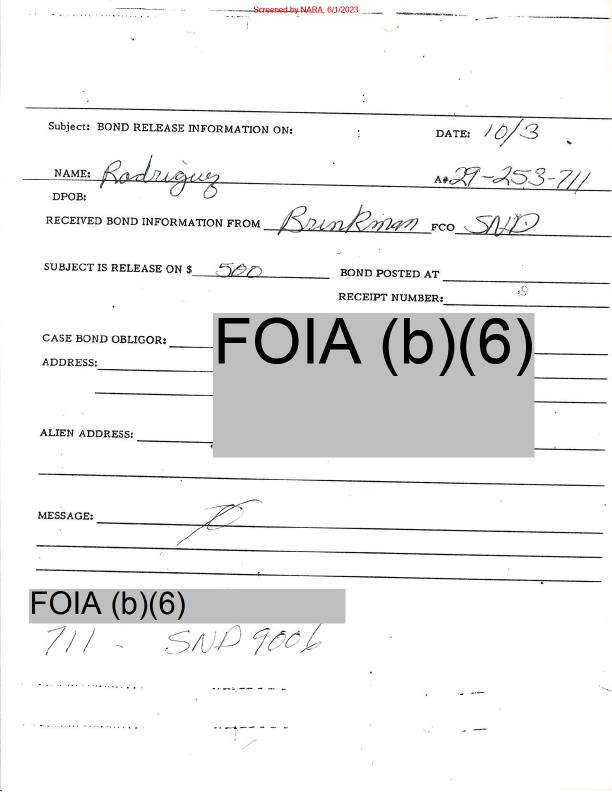 Screened by NARA, 6/1/2023
Subject: BOND RELEASE INFORMATION ON: DATE: 10/3
NAME: Rodriguez A# 27-253-711
DPOB:
RECEIVED BOND INFORMATION FROM Brinkman FCO SND
SUBJECT IS RELEASE ON $ 500 BOND POSTED AT
RECEIPT NUMBER:
CASE BOND OBLIGOR: FOIA (b)(6)
ADDRESS:
ALIEN ADDRESS:
MESSAGE:
FOIA (b)(6)
711 - SND 9006